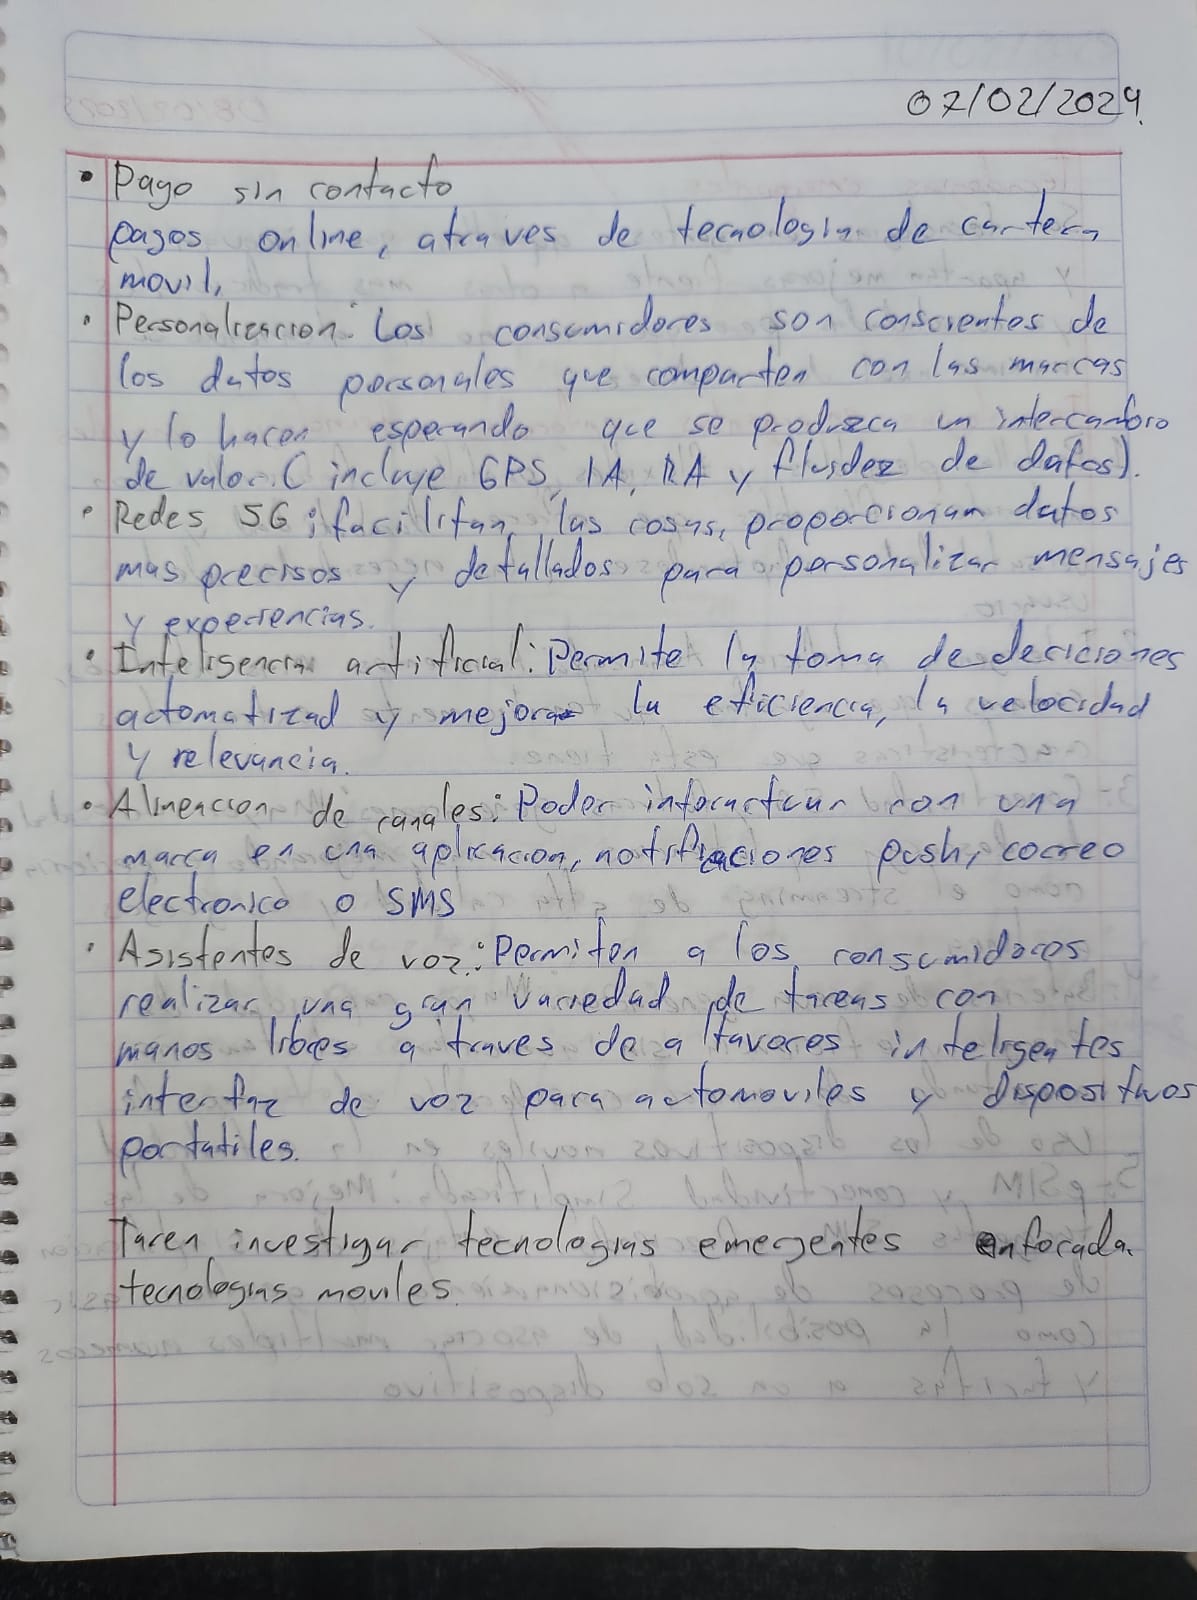 07/02/2024.
• Pago sin contacto
pagos online, atraves de tecnologia de cartera
movil,
• Personalizacion: Los consumidores son conscientes de
los datos personales que comparten con las marcas
y lo hacen esperando que se produzca un intercambio
de valor. ( incluye GPS, IA, RA y fluidez de datos).
• Redes 5G ; facilitan, las cosas, proporcionan datos
mas precisos y detallados para personalizar mensajes
y experiencias.
• Inteligencia artificial: Permite la toma de deciciones
automatizad y mejora la eficiencia, la velocidad
y relevancia.
• Alineacion de canales: Poder interactuar con una
marca en una aplicacion, notificaciones push, correo
electronico o SMS
• Asistentes de voz: Permiten a los consumidores
realizar una gran variedad de tareas con
manos libres a traves de altavoces inteligentes
interfaz de voz para automoviles y dispositivos
portatiles.
Tarea investigar tecnologias emergentes enfocada
tecnologias moviles.